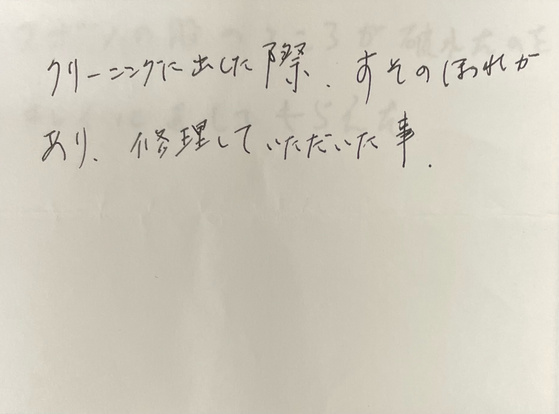 クリーニングに出した際、すそのほつれが
あり、修理していただいた事.